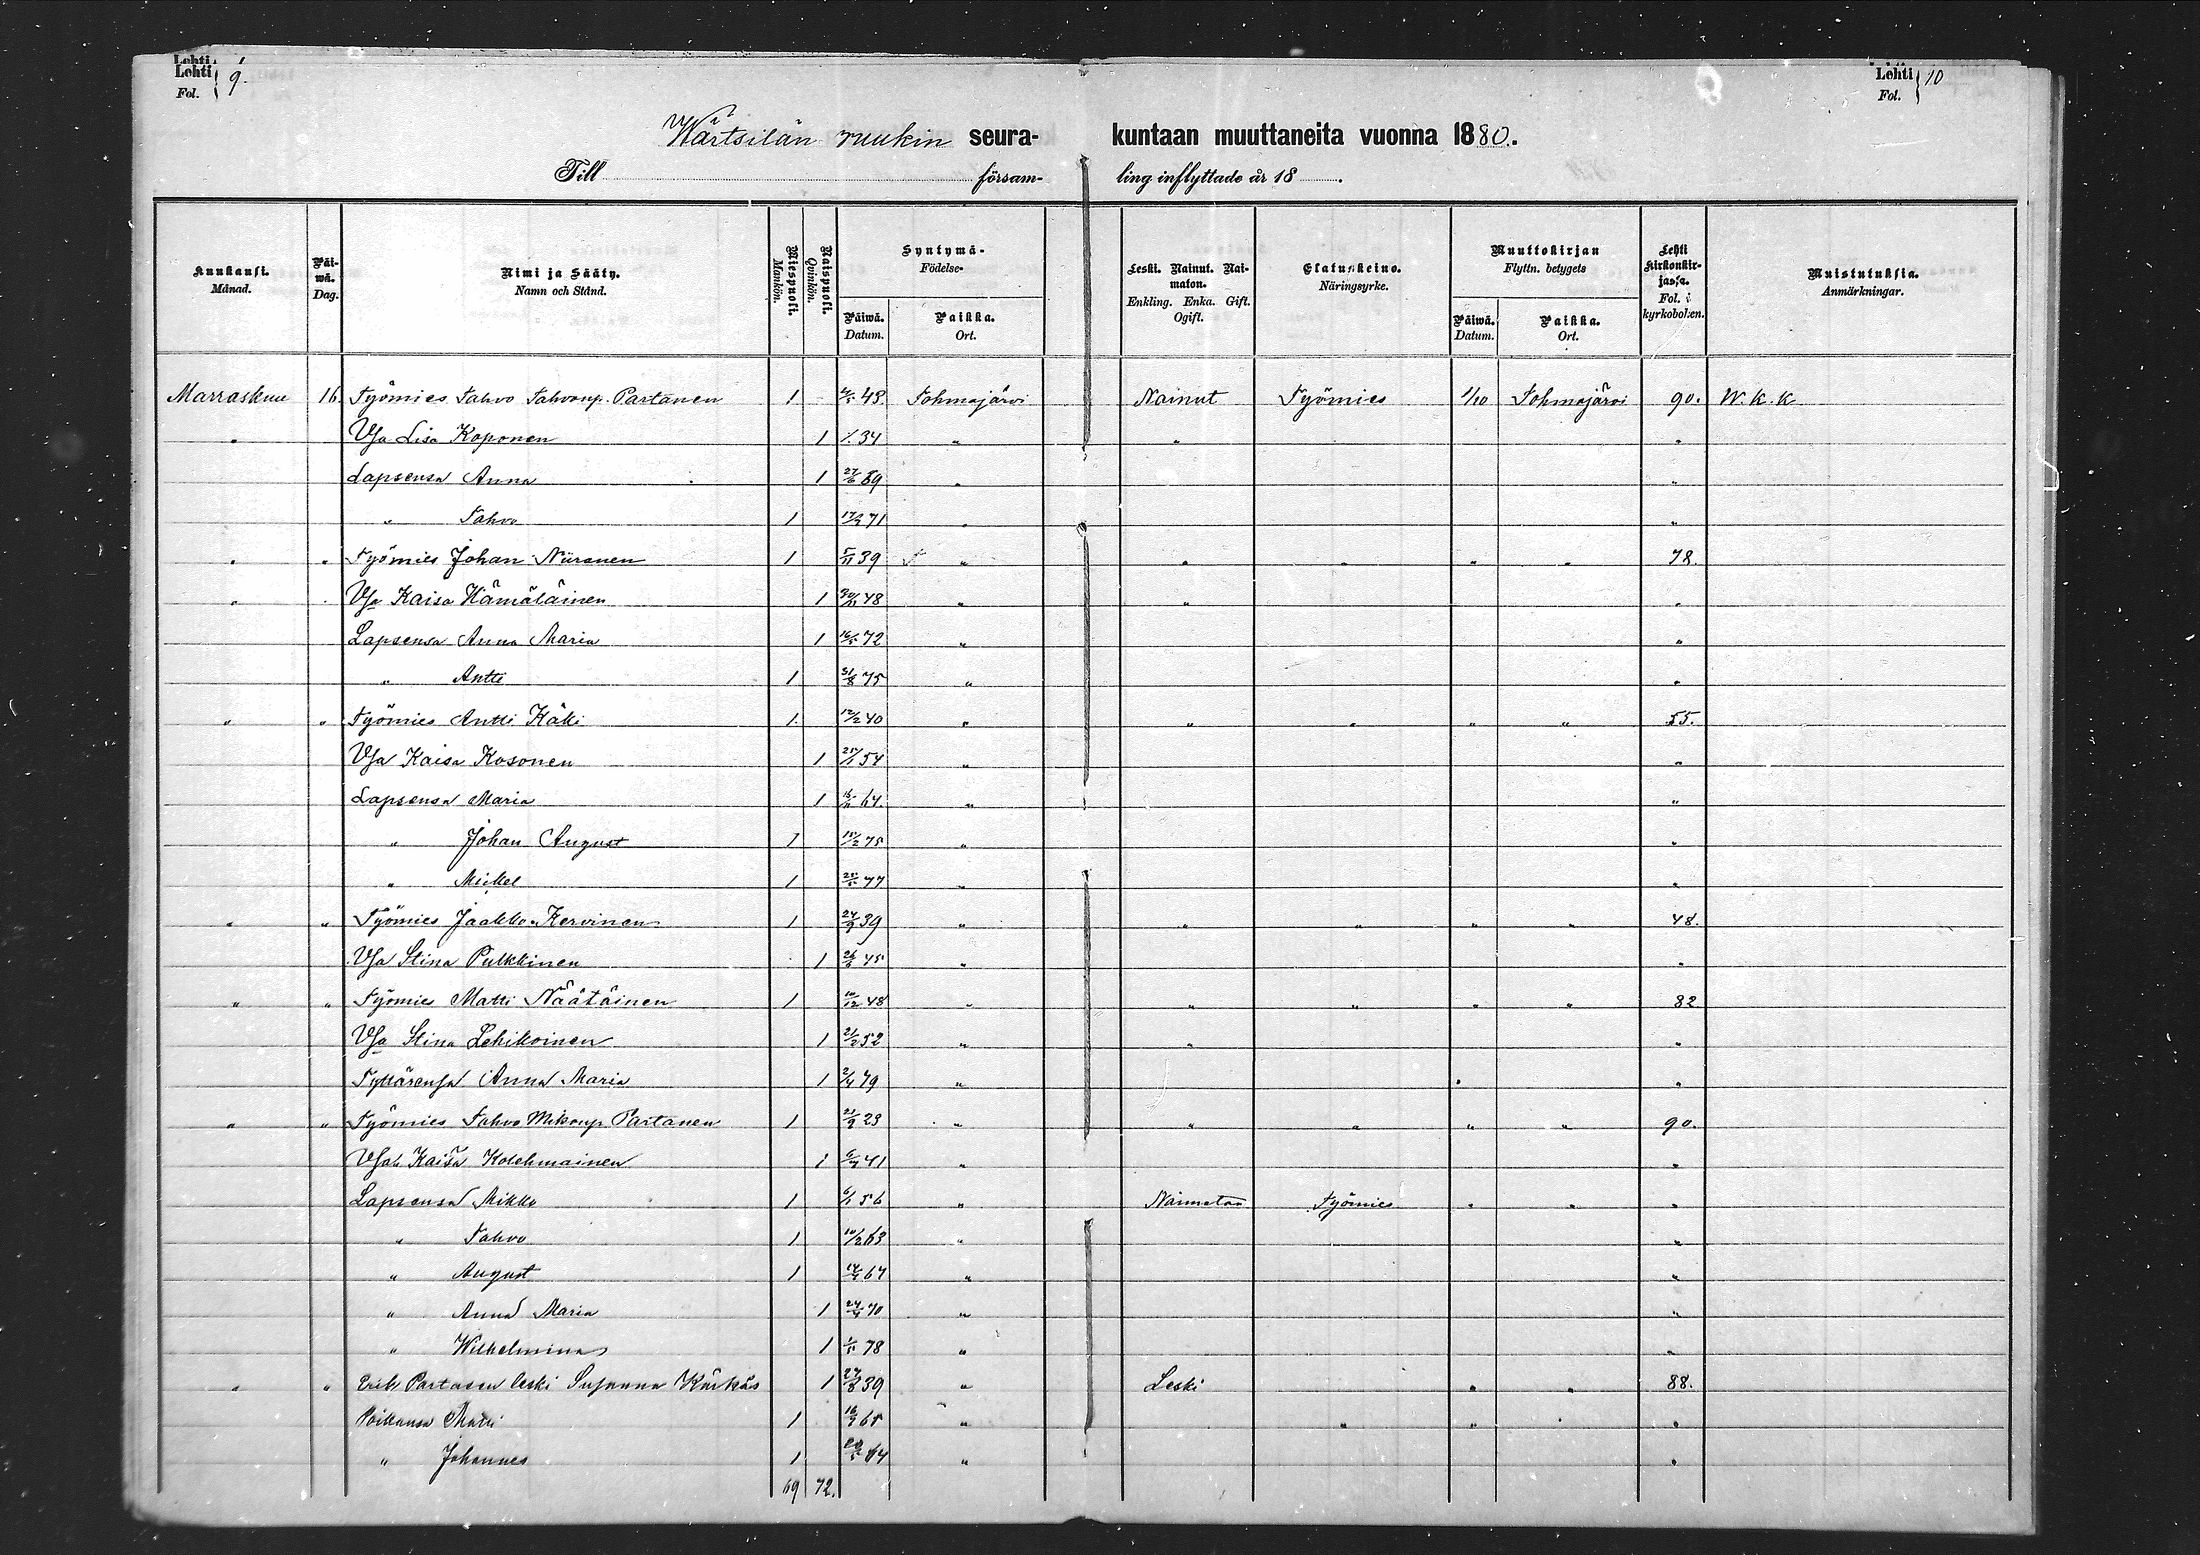 Lehti
Lehti } 9.
Fol.
Lehti } 10
Fol.
Wärtsilän ruukin seura- kuntaan muuttaneita vuonna 1880.
Till försam- ling inflyttade år 18 .
Kuukausi. Månad.
Päiwä. Dag.
Nimi ja Sääty. Namn och Stånd.
Miespuoli. Mankön.
Naispuoli. Qvinkön.
Syntymä- Födelse-
Päiwä. Datum.
Paikka. Ort.
Leski. Nainut. Naimaton. Enkling. Enka. Gift. Ogift.
Elatuskeino. Näringsyrke.
Muuttokirjan Flyttn. betygets
Päiwä. Datum.
Paikka. Ort.
Lehti kirkonkirjassa. Fol. i kyrkoboken.
Muistutuksia. Anmärkningar.
Marraskuu 16. Työmies Tahvo Tahvonp. Partanen 1 43 Tohmajärvi Nainut Työmies 1/10 Tohmajärvi 90. W.K.K
" Vsa Lisa Koponen 1 34 " " "
Lapsensa Anna 1 27/6 69 " "
" Tahvo 1 71 " "
" " Työmies Johan Niiranen 1 5/11 39 " " " " " 78.
" Vsa Kaisa Hämäläinen 1 48 " " "
Lapsensa Anna Maria 1 16/5 72 " "
" Antti 1 31/8 75 " "
" " Työmies Antti Käki 1 12/2 40 " " " " " 55.
Vsa Kaisa Kosonen 1 54 " "
Lapsensa Maria 1 64. " "
" Johan August 1 75 " "
" Mickel 1 77 " "
" " Työmies Jaakko Kervinen 1 39 " " " " " 48.
Vsa Stina Pulkkinen 1 45 " "
" " Työmies Matti Näätäinen 1 10/12 48 " " " " " 82
Vsa Stina Lehikoinen 1 21/2 52 " " "
Tyttärensa Anna Maria 1 2/4 79 " " "
" " Työmies Tahvo Mikonp. Partanen 1 23 " " " " " 90.
Vsa Kaisa Kolehmainen 1 41 " "
Lapsensa Mikko 1 6/1 56 " Naimaton Työmies " " "
" Tahvo 1 10/2 63 " "
" August 1 67 " "
" Anna Maria 1 70 " "
" Wilhelmina 1 1/11 78 " "
" " Erik Partasen leski Susanna Kärkäs 1 27/8 39 " Leski " " 88.
Poikansa Matti 1 " " " " "
" Johannes 1 " "
69 72.